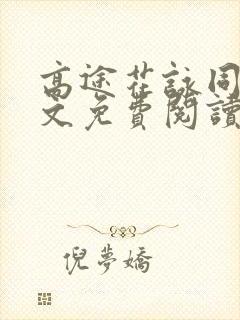 高途花詠同
文免費閱讀
倪夢嬌